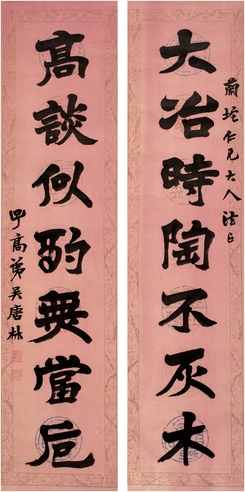 蘭垞仁兄大人法正
大冶時陶不灰木
髙談似酌無當卮
高弟吳唐林